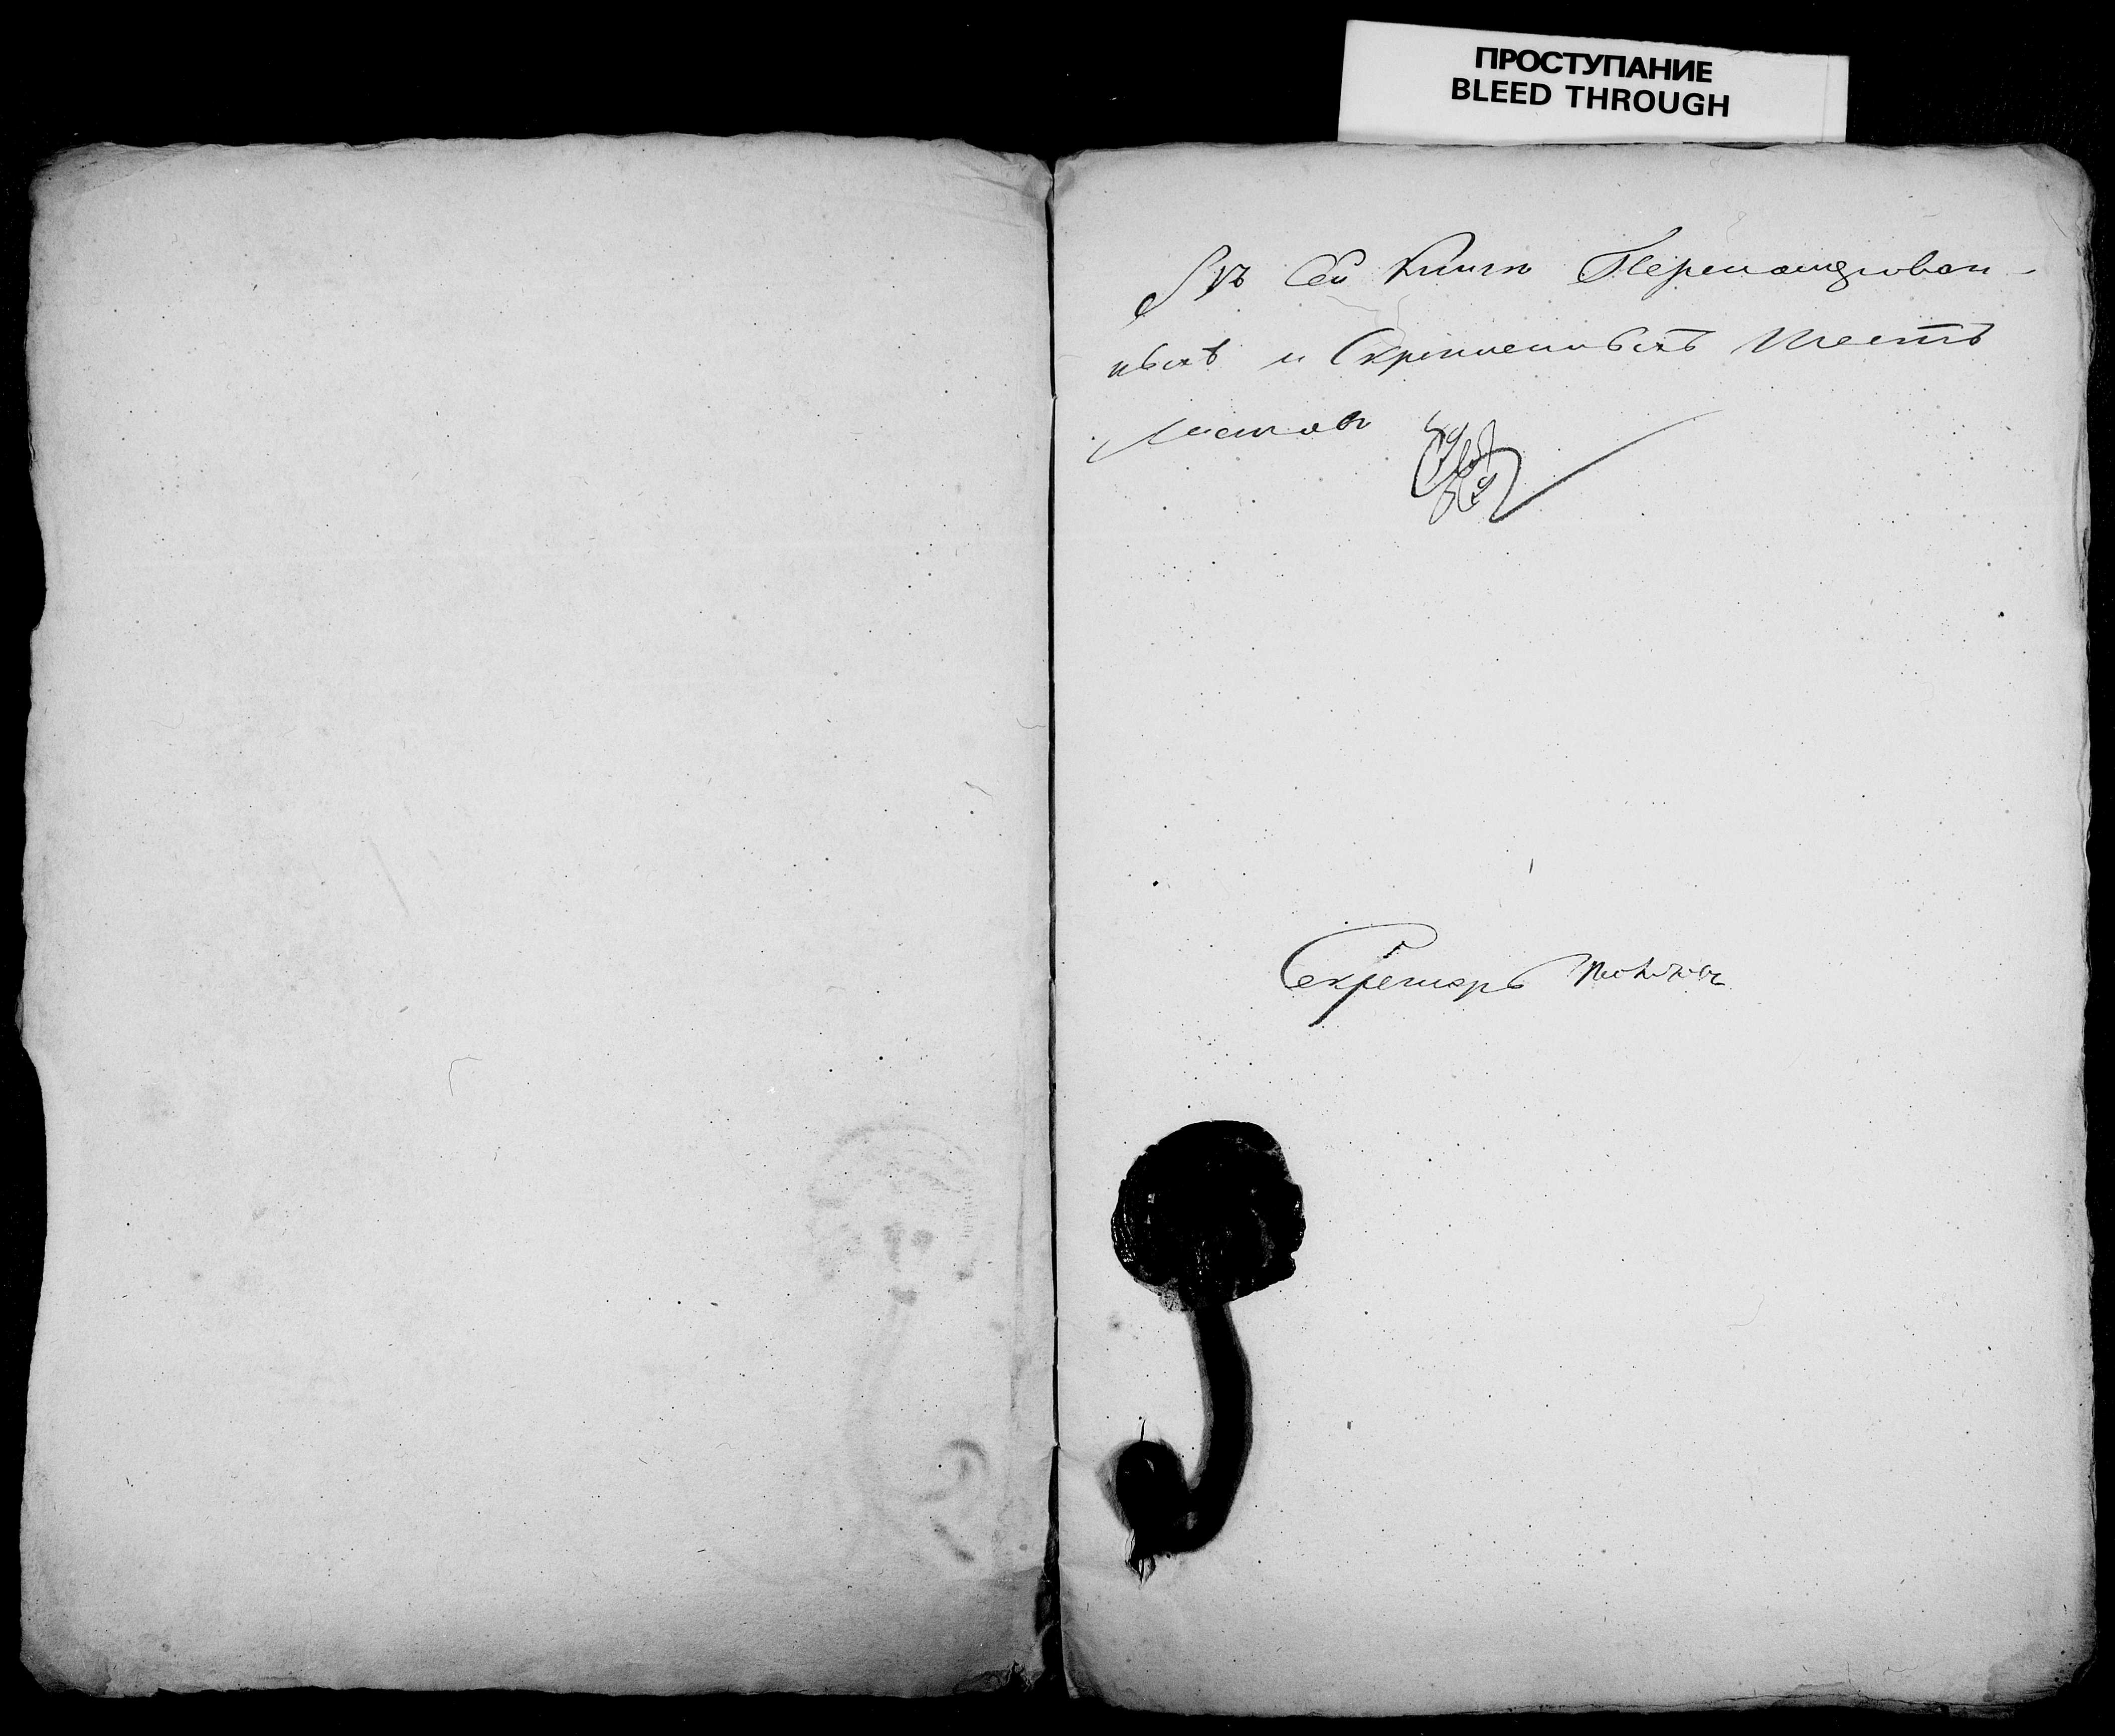 ПРОСТУПАНИЕ
BLEED THROUGH
Въ Сей Книге Перенаумерован-
ныхъ и Скрепленныхъ Шесть
листовъ
Секретарь